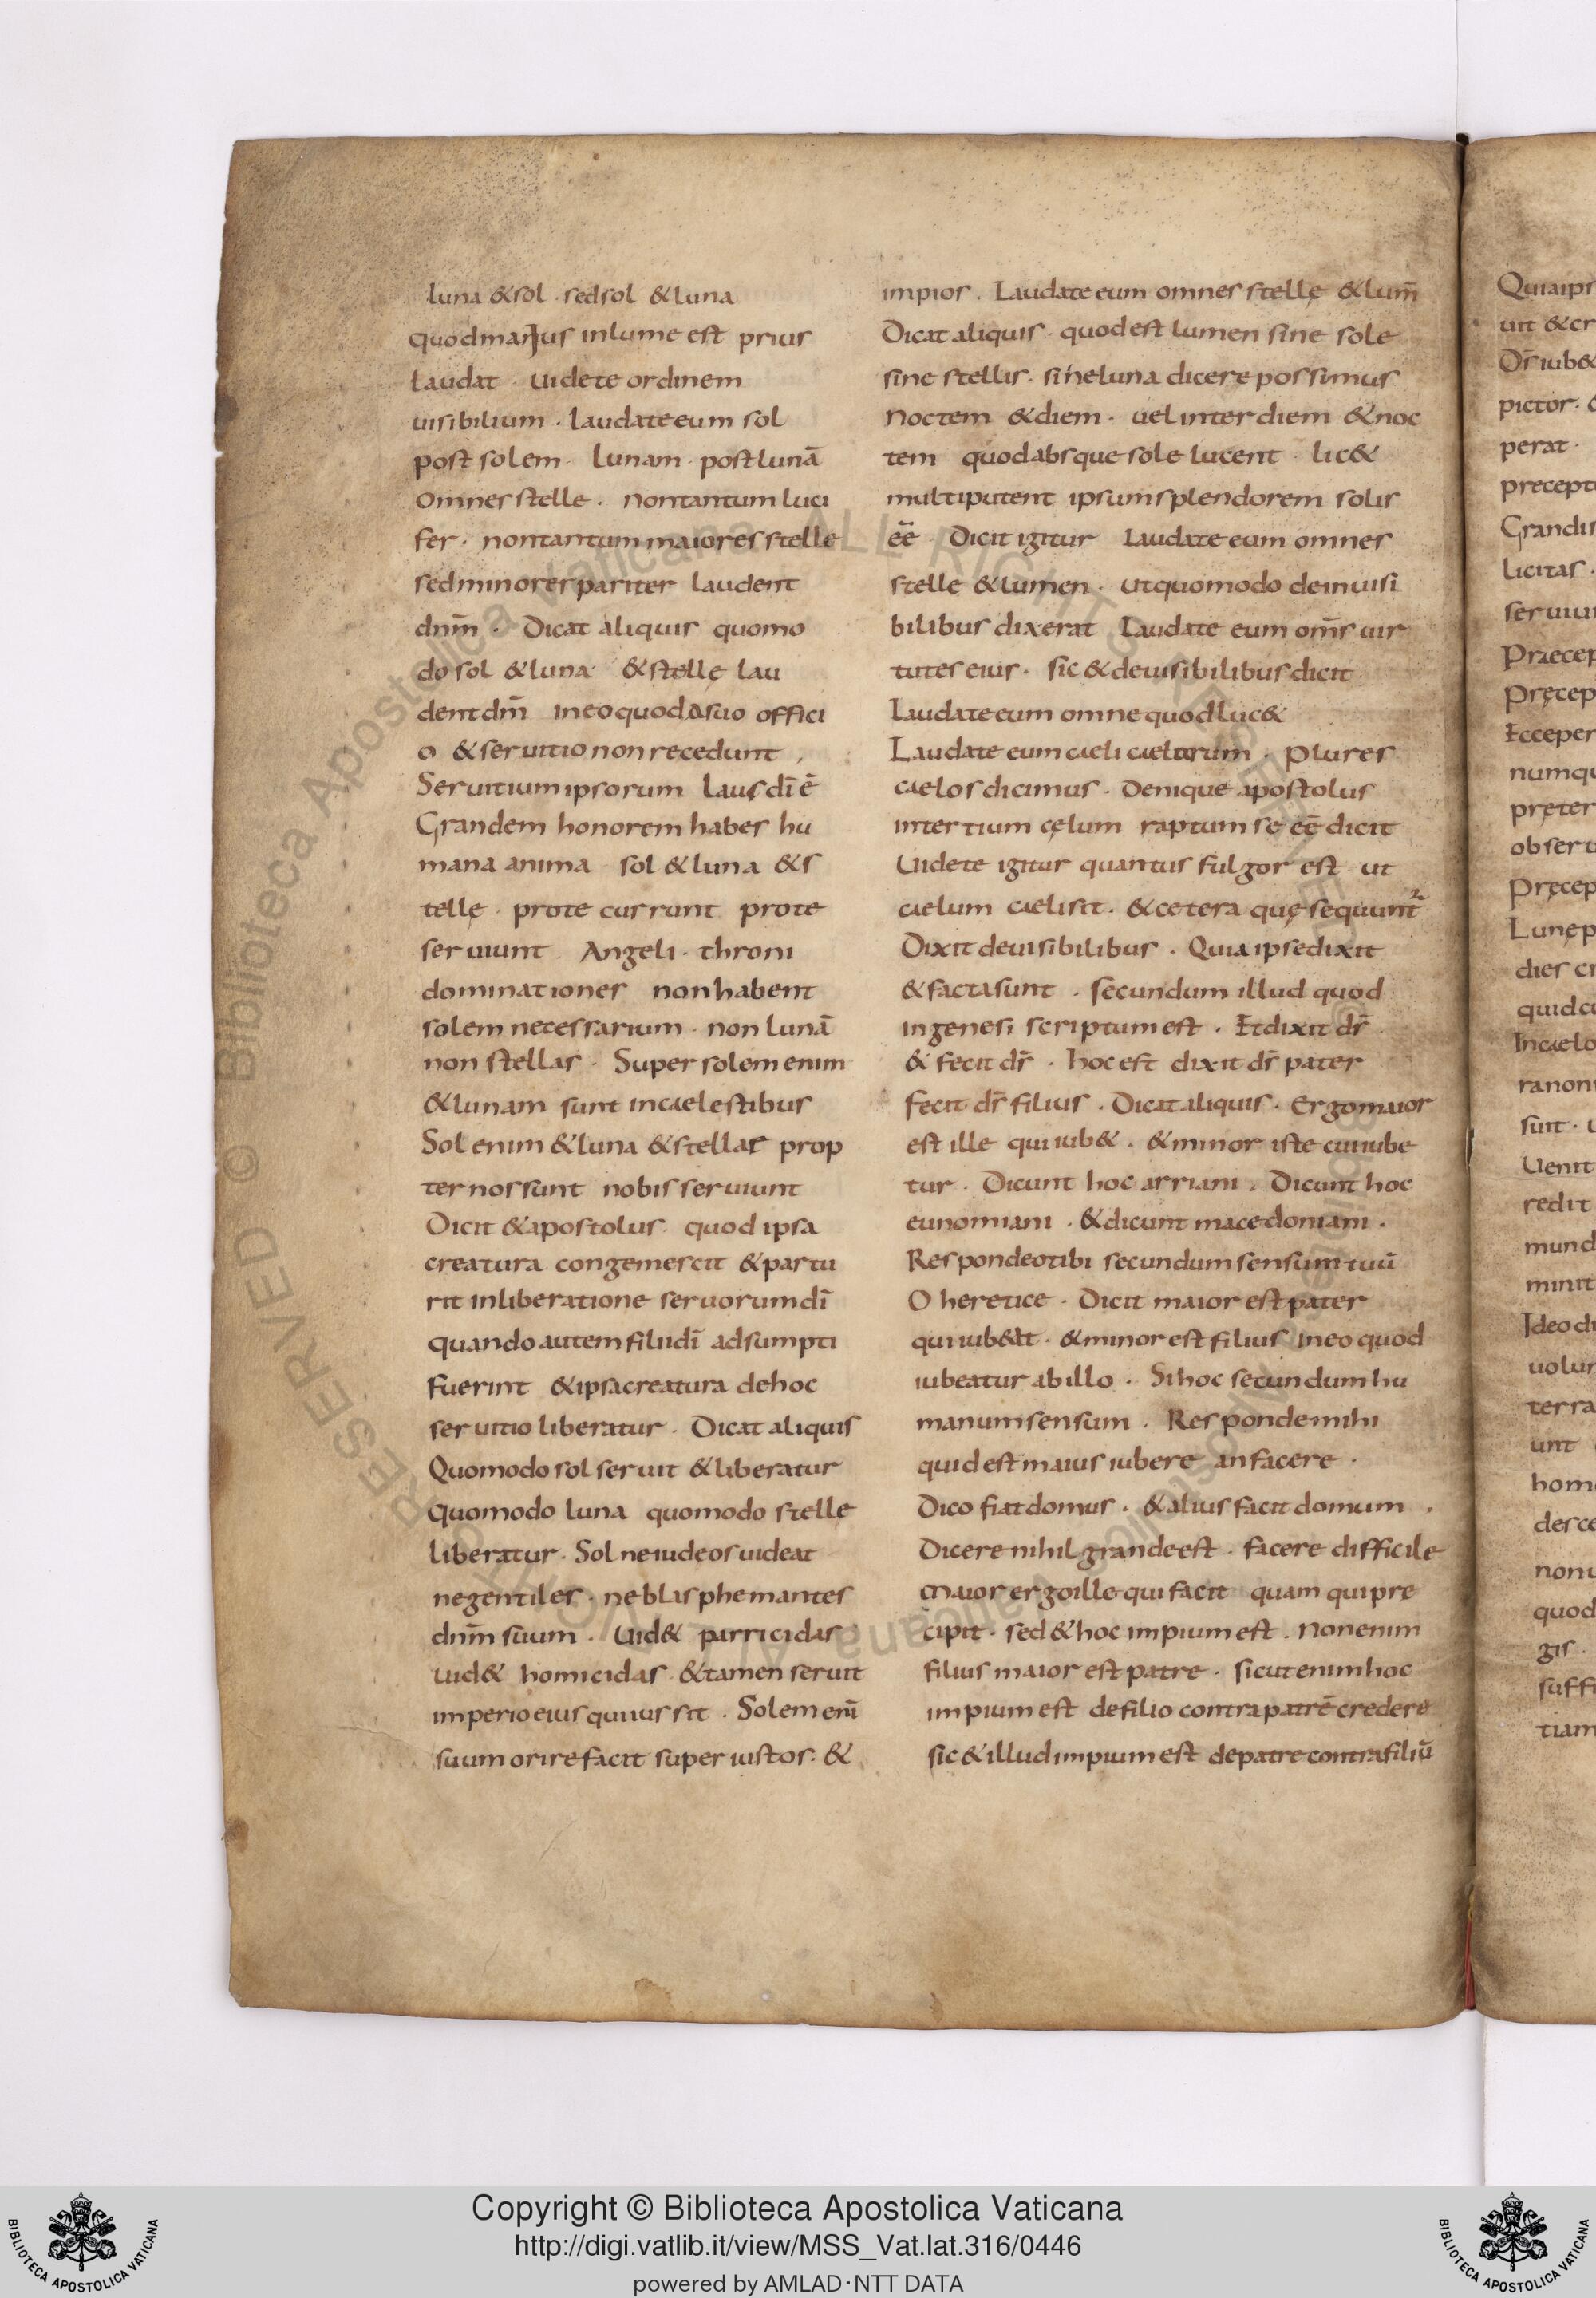 luna & sol · sed sol & luna
quod manus in lume est prius
Laudat · uidete ordinem
uisibilium · Laudate eum sol
post solem · Lunam · post lunā
omnes stelle · non tantum luci
fer · non tantum maiores stelle
sed minores pariter laudent
dnm̄ · Dicat aliquis quomo
do sol & luna & stellę lau
dent dm̄ in eo quod a suo offici
o & seruitio non recedunt ,
Seruitium ipsorum laus dī ē
Grandem honorem habes hu
mana anima sol & luna & s
tellę · pro te currunt pro te
seruiunt Angeli · throni
dominationes non habent
solem necessarium · non lunā
non stellas · Super solem enim
& lunam sunt in caelestibus
Sol enim & luna & stellae prop
ter nos sunt nobis seruiunt
Dicit & apostolus quod ipsa
creatura congemescit & partu
rit in liberatione seruorum dī
quando autem filii dī adsumpti
fuerint & ipsa creatura de hoc
seruitio liberatur · Dicat aliquis
Quomodo sol seruit & liberatur
quomodo luna quomodo stelle
liberatur · Sol ne iudeos uideat
ne gentiles · ne blasphemantes
dnm̄ suum · Uid& parricidas
uid& homicidas & tamen seruit
imperio eius qui iussit · Solem enī
suum orire facit super iustos · &
impios · Laudate eum omnes stellę & lum̄
Dicat aliquis · quod est lumen sine sole
sine stellis · sine luna dicere possumus
noctem & diem · uel inter diem & noc
tem quod absque sole lucent · lic&
multi putent ipsum splendorem solis
eē · Dicit igitur Laudate eum omnes
stelle & lumen · ut quomodo de inuisi
bilibus dixerat Laudate eum om̄s uir
tutes eius · sic & de uisibilibus dicit
Laudate eum omne quod luc&
Laudate eum caeli caelorum · Plures
caelos dicimus · Denique apostolus
in tertium cęlum raptum se eē dicit
Uidete igitur quantus fulgor est ut
caelum caeli sit · & cetera quę sequunt
Dixit de uisibilibus · Quia ipse dixit
& facta sunt · secundum illud quod
in genesi scriptum est · Et dixit ds̄
& fecit ds̄ · hoc est dixit ds̄ pater
fecit ds̄ filius · Dicat aliquis · Ergo maior
est ille qui iub& · & minor iste cui iube
tur · Dicunt hoc arriani · Dicunt hoc
eunomiani · & dicunt macedoniani ·
Respondeo tibi secundum sensum tuū
O heretice · Dicit maior est pater
qui iub&at · & minor est filius in eo quod
iubeatur ab illo · Si hoc secundum hu
manum sensum · Responde mihi
quid est maius iubere an facere ·
Dico fiat domus · & alius facit domum ·
Dicere nihil grande est · facere difficile
Maior ergo ille qui facit quam qui prę
cipit · sed & hoc impium est · Non enim
filius maior est patre · sicut enim hoc
impium est de filio contra patrē credere
sic & illud impium est de patre contra filiū
Quia ips
uit & cr
Ds̄ iub&
pictor · &
perat ·
precept
Grandis
licitas ·
seruiu
Praecep
Pręcep
Ecce per
numqu
pręter
obseru
Pręcep
Lunę p
dies cr
quid cu
In caelo
ranon
sunt · u
Uenit
redit
mund
minit
Ideo di
uolun
terra
unt
hom
desce
non u
quod
gis ·
suffi
tiam
Copyright © Biblioteca Apostolica Vaticana
http://digi.vatlib.it/view/MSS_Vat.lat.316/0446
powered by AMLAD·NTT DATA
BIBLIOTECA APOSTOLICA VATICANA
BIBLIOTECA APOSTOLICA VATICANA